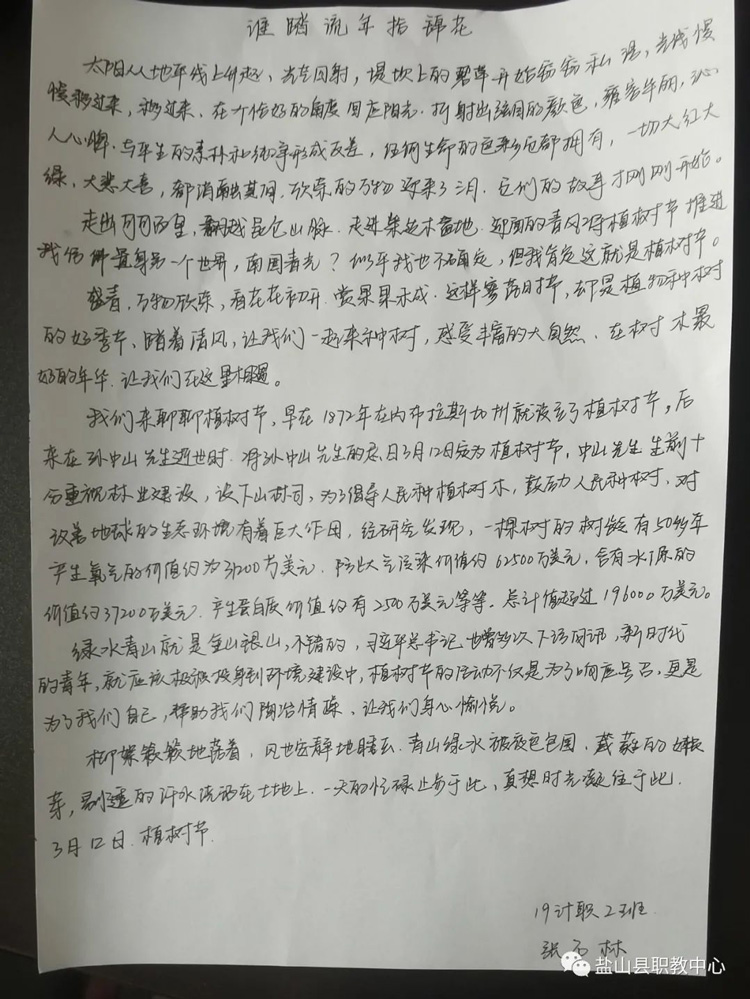 谁踏流年指锦花
太阳从地平线上升起，光在回射，堤坎上的碧草开始窃窃私语，光线慢
慢移过来，移过来，在个恰好的角度回应阳光。折射出强国的颜色，雍容华丽，沁
人心脾。与平生的素朴和纯净形成反差，任何生命的色彩它都拥有，一切大红大
绿，大悲大喜，都消融其间。欣荣的万物迎来了三月。它们的故事才刚刚开始。
走出可可西里，翻越昆仑山脉。走进柴达木盆地。迎面的清风将植树节推进
我们 置身另一个世界，南国春光？似乎我也不确定，但我肯定这就是植树节。
踏青，万物欣荣，看花花初开，赏果果未成。这样寥落时节，却是植物和种树
的好季节、踏着清风，让我们一起来种树，感受丰富的大自然、在树木最
好的年华，让我们在这里相遇。
我们来聊聊植树节，早在1872年在内布拉斯加州就设立了植树节，后
来在孙中山先生逝世时，将孙中山先生的忌日3月12日定为植树节，中山先生生前十
分重视林业建设，设下山林司，为了倡导人民种植树木，鼓动人民种树，对
改善地球的生态环境有着巨大作用，经研究发现，一棵树的树龄有50多年
产生氧气的价值约为31200万美元，防止大气污染价值约62500万美元，含有水源的
价值约37200万美元，产生蛋白质价值约有2500万美元等等。总计值超过196000万美元。
绿水青山就是金山银山，不错的，习近平总书记也曾多次下访问讯，新时代
的青年，就应该积极投身到环境建设中，植树节的活动不仅是为了响应号召，更是
为了我们自己，帮助我们陶冶情操、让我们身心愉悦。
柳絮簌簌地落着，风也安静地睡去。青山绿水被夜色包围，葳蕤的嫩
芽，剔透的汗水流洒在土地上，一天的忙碌止步于此，真想时光凝住于此。
3月12日，植树节
19计职2班
张 林
盐山县职教中心